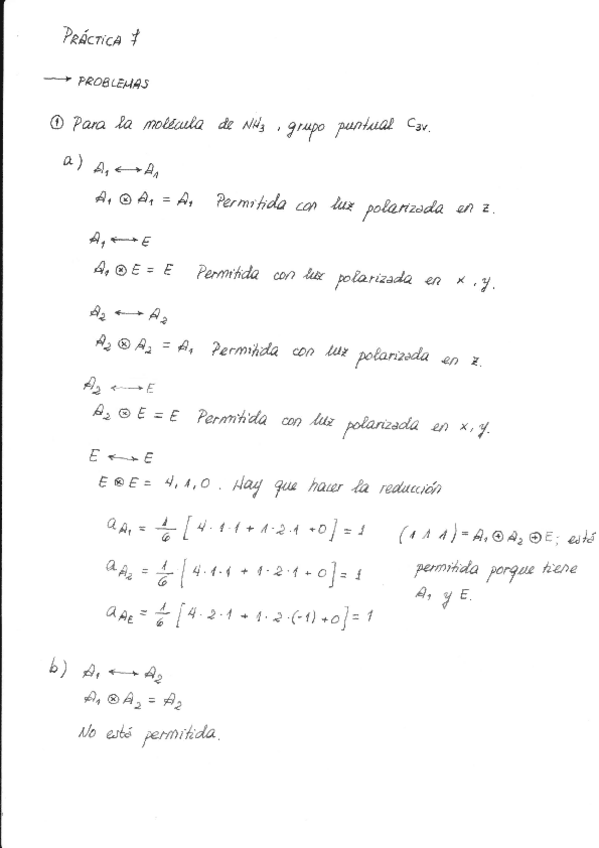 PRÁCTICA 7
→ PROBLEMAS
① Para la molécula de NH₃, grupo puntual C₃ᵥ.
a) A₁ ⟷ A₁
A₁ ⊗ A₁ = A₁ Permitida con luz polarizada en z.
A₁ ⟷ E
A₁ ⊗ E = E Permitida con luz polarizada en x, y.
A₂ ⟷ A₂
A₂ ⊗ A₂ = A₁ Permitida con luz polarizada en z.
A₂ ⟷ E
A₂ ⊗ E = E Permitida con luz polarizada en x, y.
E ⟷ E
E ⊗ E = 4, 1, 0. Hay que hacer la reducción
a_A₁ = 1/6 [4·1·1 + 1·2·1 + 0] = 1 (1 1 1) = A₁ ⊕ A₂ ⊕ E; está
a_A₂ = 1/6 [4·1·1 + 1·2·1 + 0] = 1 permitida porque tiene
A₁ y E.
a_AE = 1/6 [4·2·1 + 1·2·(-1) + 0] = 1
b) A₁ ⟷ A₂
A₁ ⊗ A₂ = A₂
No está permitida.